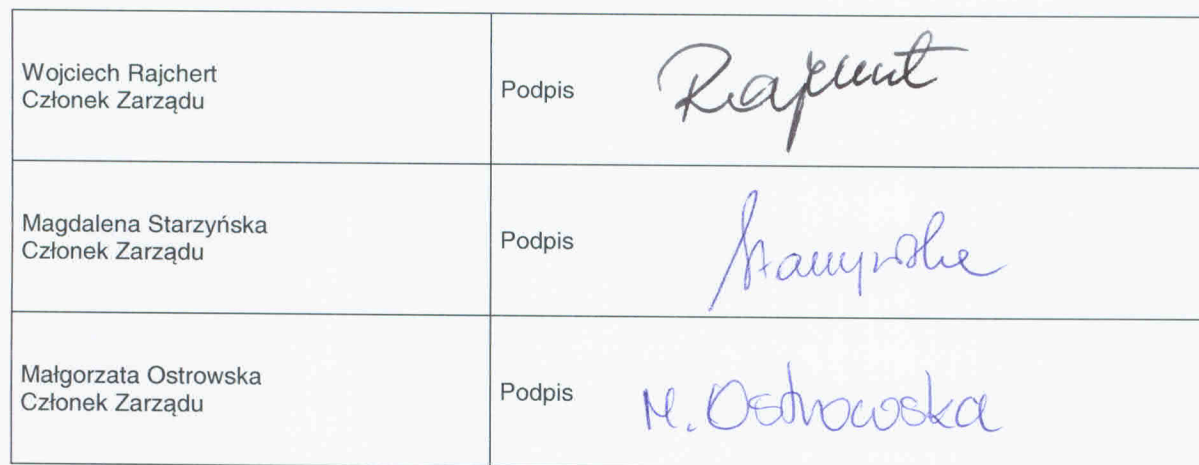 Wojciech Rajchert
Członek Zarządu
Podpis
Magdalena Starzyńska
Członek Zarządu
Podpis
Małgorzata Ostrowska
Członek Zarządu
Podpis
M. Ostrowska